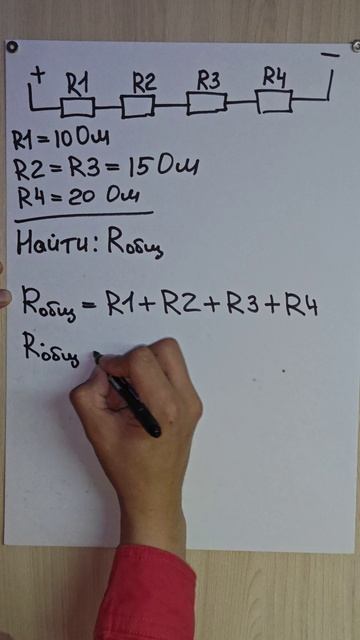 + R1 R2 R3 R4 −
R1 = 10 Ом
R2 = R3 = 15 Ом
R4 = 20 Ом
Найти: Rобщ
Rобщ = R1 + R2 + R3 + R4
Rобщ